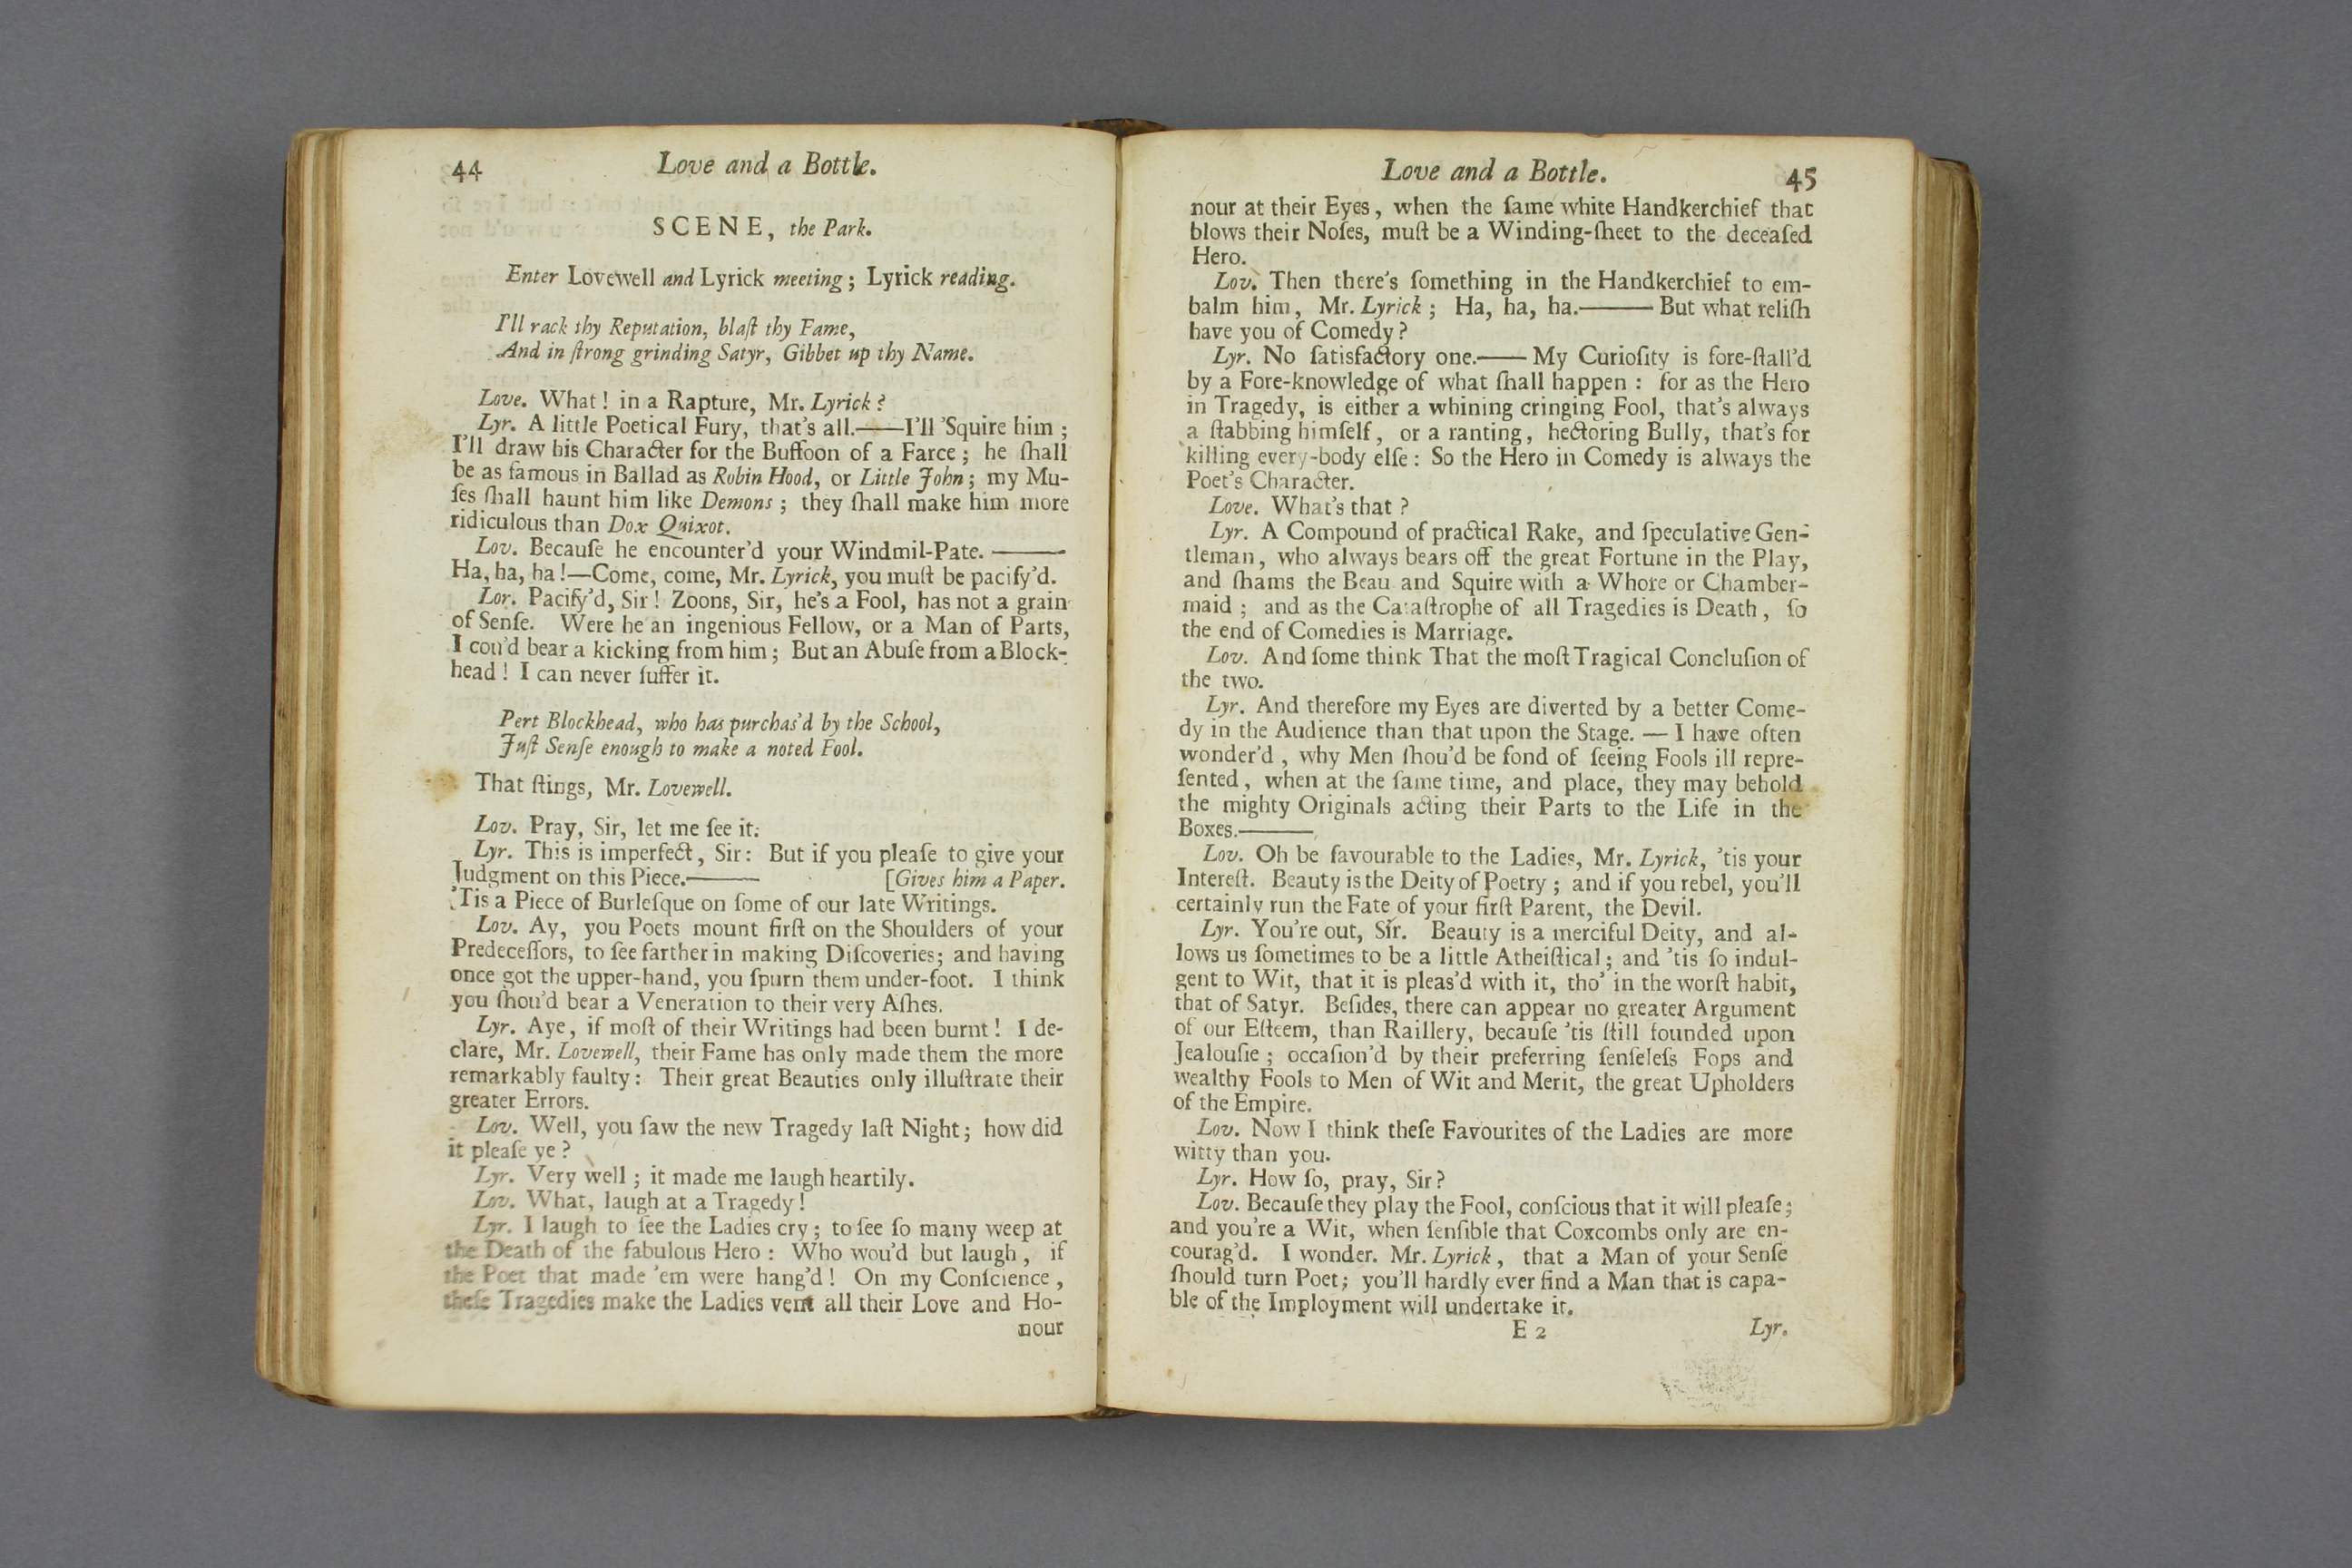 44
Love and a Bottle.
SCENE, the Park.
Enter Lovewell and Lyrick meeting; Lyrick reading.
I'll rack thy Reputation, blaſt thy Fame,
And in ſtrong grinding Satyr, Gibbet up thy Name.
Love. What! in a Rapture, Mr. Lyrick?
Lyr. A little Poetical Fury, that's all.——I'll 'Squire him;
I'll draw his Character for the Buffoon of a Farce; he ſhall
be as famous in Ballad as Robin Hood, or Little John; my Mu-
ſes ſhall haunt him like Demons; they ſhall make him more
ridiculous than Dox Quixot.
Lov. Becauſe he encounter'd your Windmil-Pate. ——
Ha, ha, ha!—Come, come, Mr. Lyrick, you muſt be pacify'd.
Lor. Pacify'd, Sir! Zoons, Sir, he's a Fool, has not a grain
of Senſe. Were he an ingenious Fellow, or a Man of Parts,
I cou'd bear a kicking from him; But an Abuſe from a Block-
head! I can never ſuffer it.
Pert Blockhead, who has purchas'd by the School,
Juſt Senſe enough to make a noted Fool.
That ſtings, Mr. Lovewell.
Lov. Pray, Sir, let me ſee it.
Lyr. This is imperfect, Sir: But if you pleaſe to give your
Judgment on this Piece.—— [Gives him a Paper.
'Tis a Piece of Burleſque on ſome of our late Writings.
Lov. Ay, you Poets mount firſt on the Shoulders of your
Predeceſſors, to ſee farther in making Diſcoveries; and having
once got the upper-hand, you ſpurn them under-foot. I think
you ſhou'd bear a Veneration to their very Aſhes.
Lyr. Aye, if moſt of their Writings had been burnt! I de-
clare, Mr. Lovewell, their Fame has only made them the more
remarkably faulty: Their great Beauties only illuſtrate their
greater Errors.
Lov. Well, you ſaw the new Tragedy laſt Night; how did
it pleaſe ye?
Lyr. Very well; it made me laugh heartily.
Lov. What, laugh at a Tragedy!
Lyr. I laugh to ſee the Ladies cry; to ſee ſo many weep at
the Death of the fabulous Hero: Who wou'd but laugh, if
the Poet that made 'em were hang'd! On my Conſcience,
theſe Tragedies make the Ladies vent all their Love and Ho-
nour
Love and a Bottle.
45
nour at their Eyes, when the ſame white Handkerchief that
blows their Noſes, muſt be a Winding-ſheet to the deceaſed
Hero.
Lov. Then there's ſomething in the Handkerchief to em-
balm him, Mr. Lyrick; Ha, ha, ha.—— But what reliſh
have you of Comedy?
Lyr. No ſatisfactory one.—— My Curioſity is fore-ſtall'd
by a Fore-knowledge of what ſhall happen: for as the Hero
in Tragedy, is either a whining cringing Fool, that's always
a ſtabbing himſelf, or a ranting, hectoring Bully, that's for
killing every-body elſe: So the Hero in Comedy is always the
Poet's Character.
Love. What's that?
Lyr. A Compound of practical Rake, and ſpeculative Gen-
tleman, who always bears off the great Fortune in the Play,
and ſhams the Beau and Squire with a Whore or Chamber-
maid; and as the Cataſtrophe of all Tragedies is Death, ſo
the end of Comedies is Marriage.
Lov. And ſome think That the moſt Tragical Concluſion of
the two.
Lyr. And therefore my Eyes are diverted by a better Come-
dy in the Audience than that upon the Stage. — I have often
wonder'd, why Men ſhou'd be fond of ſeeing Fools ill repre-
ſented, when at the ſame time, and place, they may behold
the mighty Originals acting their Parts to the Life in the
Boxes.——
Lov. Oh be favourable to the Ladies, Mr. Lyrick, 'tis your
Intereſt. Beauty is the Deity of Poetry; and if you rebel, you'll
certainly run the Fate of your firſt Parent, the Devil.
Lyr. You're out, Sir. Beauty is a merciful Deity, and al-
lows us ſometimes to be a little Atheiſtical; and 'tis ſo indul-
gent to Wit, that it is pleas'd with it, tho' in the worſt habit,
that of Satyr. Beſides, there can appear no greater Argument
of our Eſteem, than Raillery, becauſe 'tis ſtill founded upon
Jealouſie; occaſion'd by their preferring ſenſeleſs Fops and
wealthy Fools to Men of Wit and Merit, the great Upholders
of the Empire.
Lov. Now I think theſe Favourites of the Ladies are more
witty than you.
Lyr. How ſo, pray, Sir?
Lov. Becauſe they play the Fool, conſcious that it will pleaſe;
and you're a Wit, when ſenſible that Coxcombs only are en-
courag'd. I wonder. Mr. Lyrick, that a Man of your Senſe
ſhould turn Poet; you'll hardly ever find a Man that is capa-
ble of the Imployment will undertake it.
E 2
Lyr.